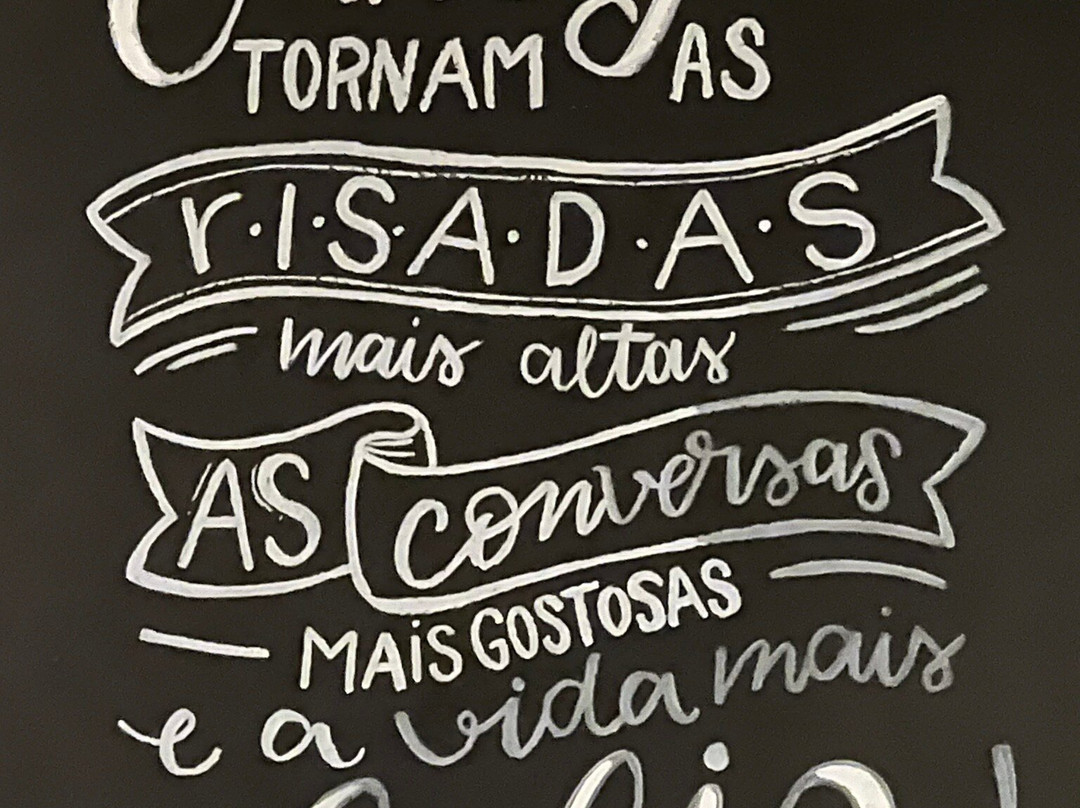 TORNAM AS
r·I·S·A·D·A·S
mais altas
AS conversas
MAiS GOSTOSAS
e a vida mais